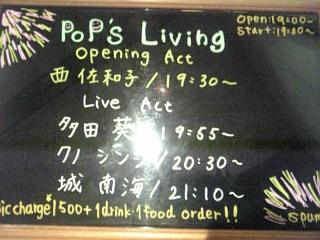 PoP's Living
Open:19:00~
Start:19:30~
Opening Act
西 佐和子/19:30~
Live Act
多田 葵/19:55~
クノ シンジ/20:30~
城 南海/21:10~
ic charge ¥1500+1drink 1food order!!
spum